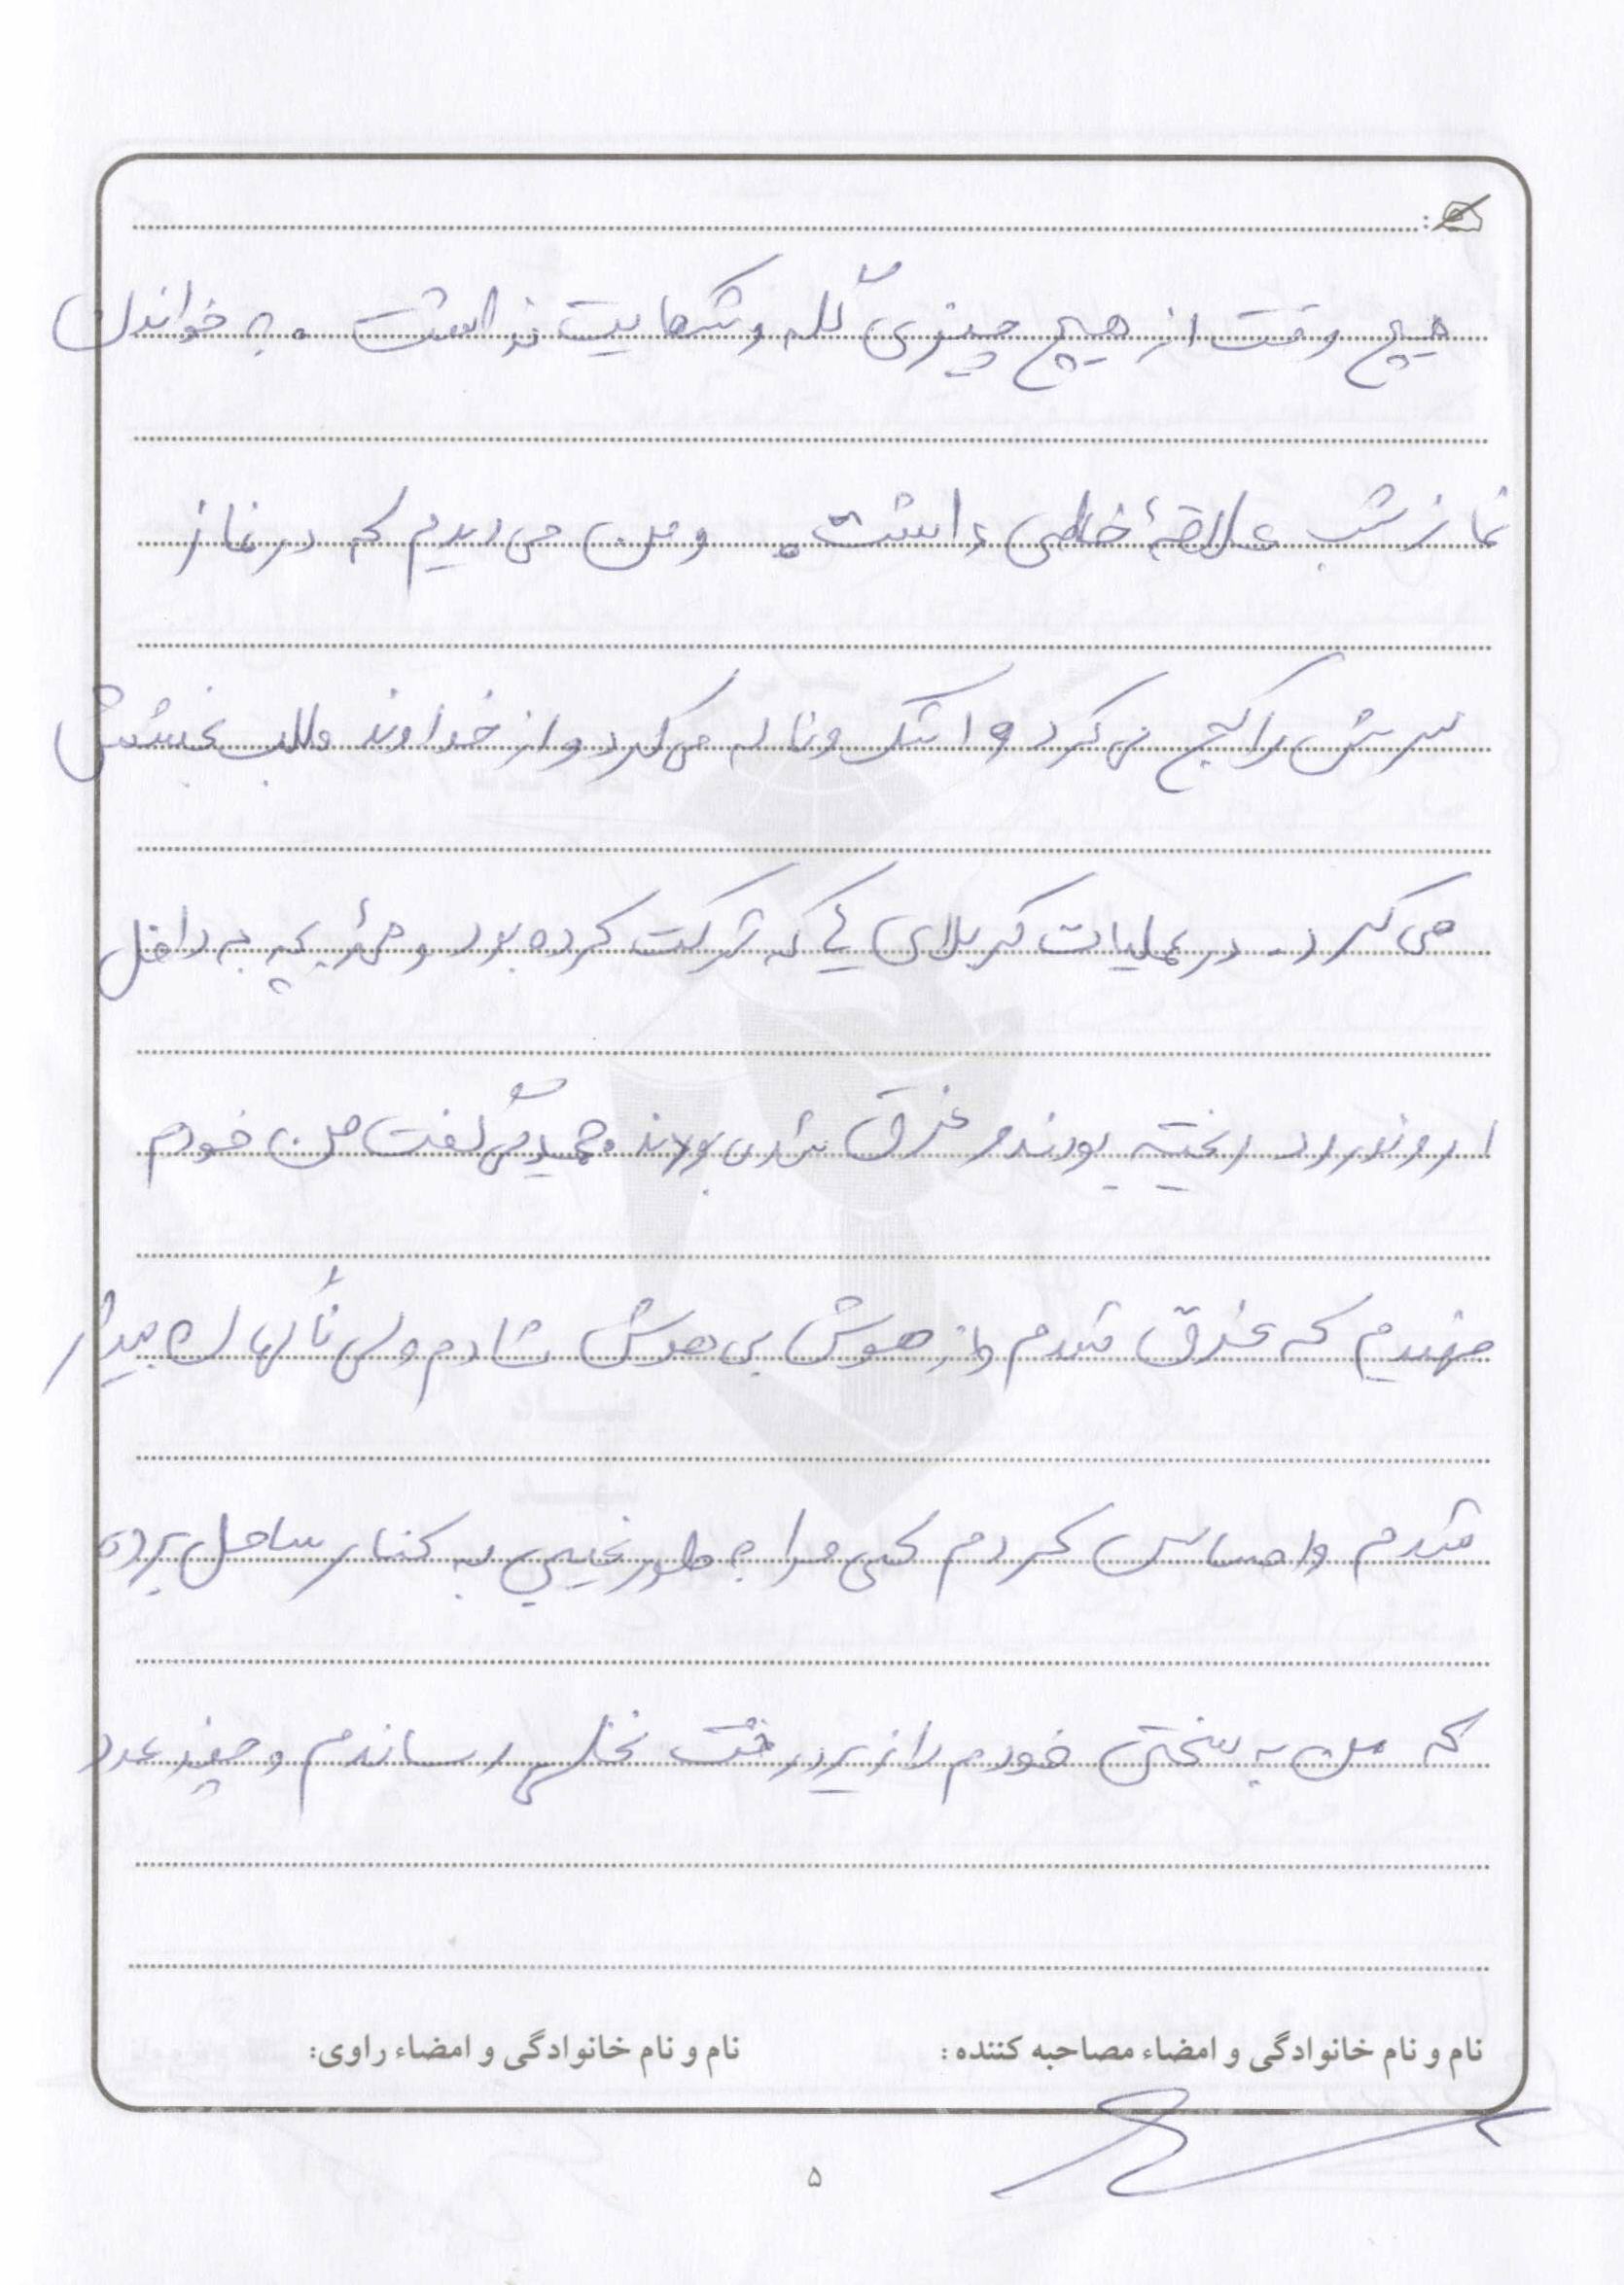 هیچ وقت از هیچ چیزی گله و شکایت نداشت . به خواندن
نماز شب علاقهٔ خاصی داشت . و من می دیدم که در نماز
سرش را کج می کرد و اشک و ناله می کرد و از خداوند طلب بخشش
می کرد . در عملیات کربلای که شرکت کرده بود و بچه به داخل
اروندرود ریخته بودند و غرق شدن بودند . حمید می گفت من خودم
فهمیدم که غرق شدم و از هوش بی هوش شدم ولی ناگهان بیدار
شدم و احساس کردم کسی مرا به طور غیبی به کنار ساحل برده
که من به سختی خودم را زیر درخت نخلها رساندم و چند عدد
نام و نام خانوادگی و امضاء مصاحبه کننده :
نام و نام خانوادگی و امضاء راوی:
۵